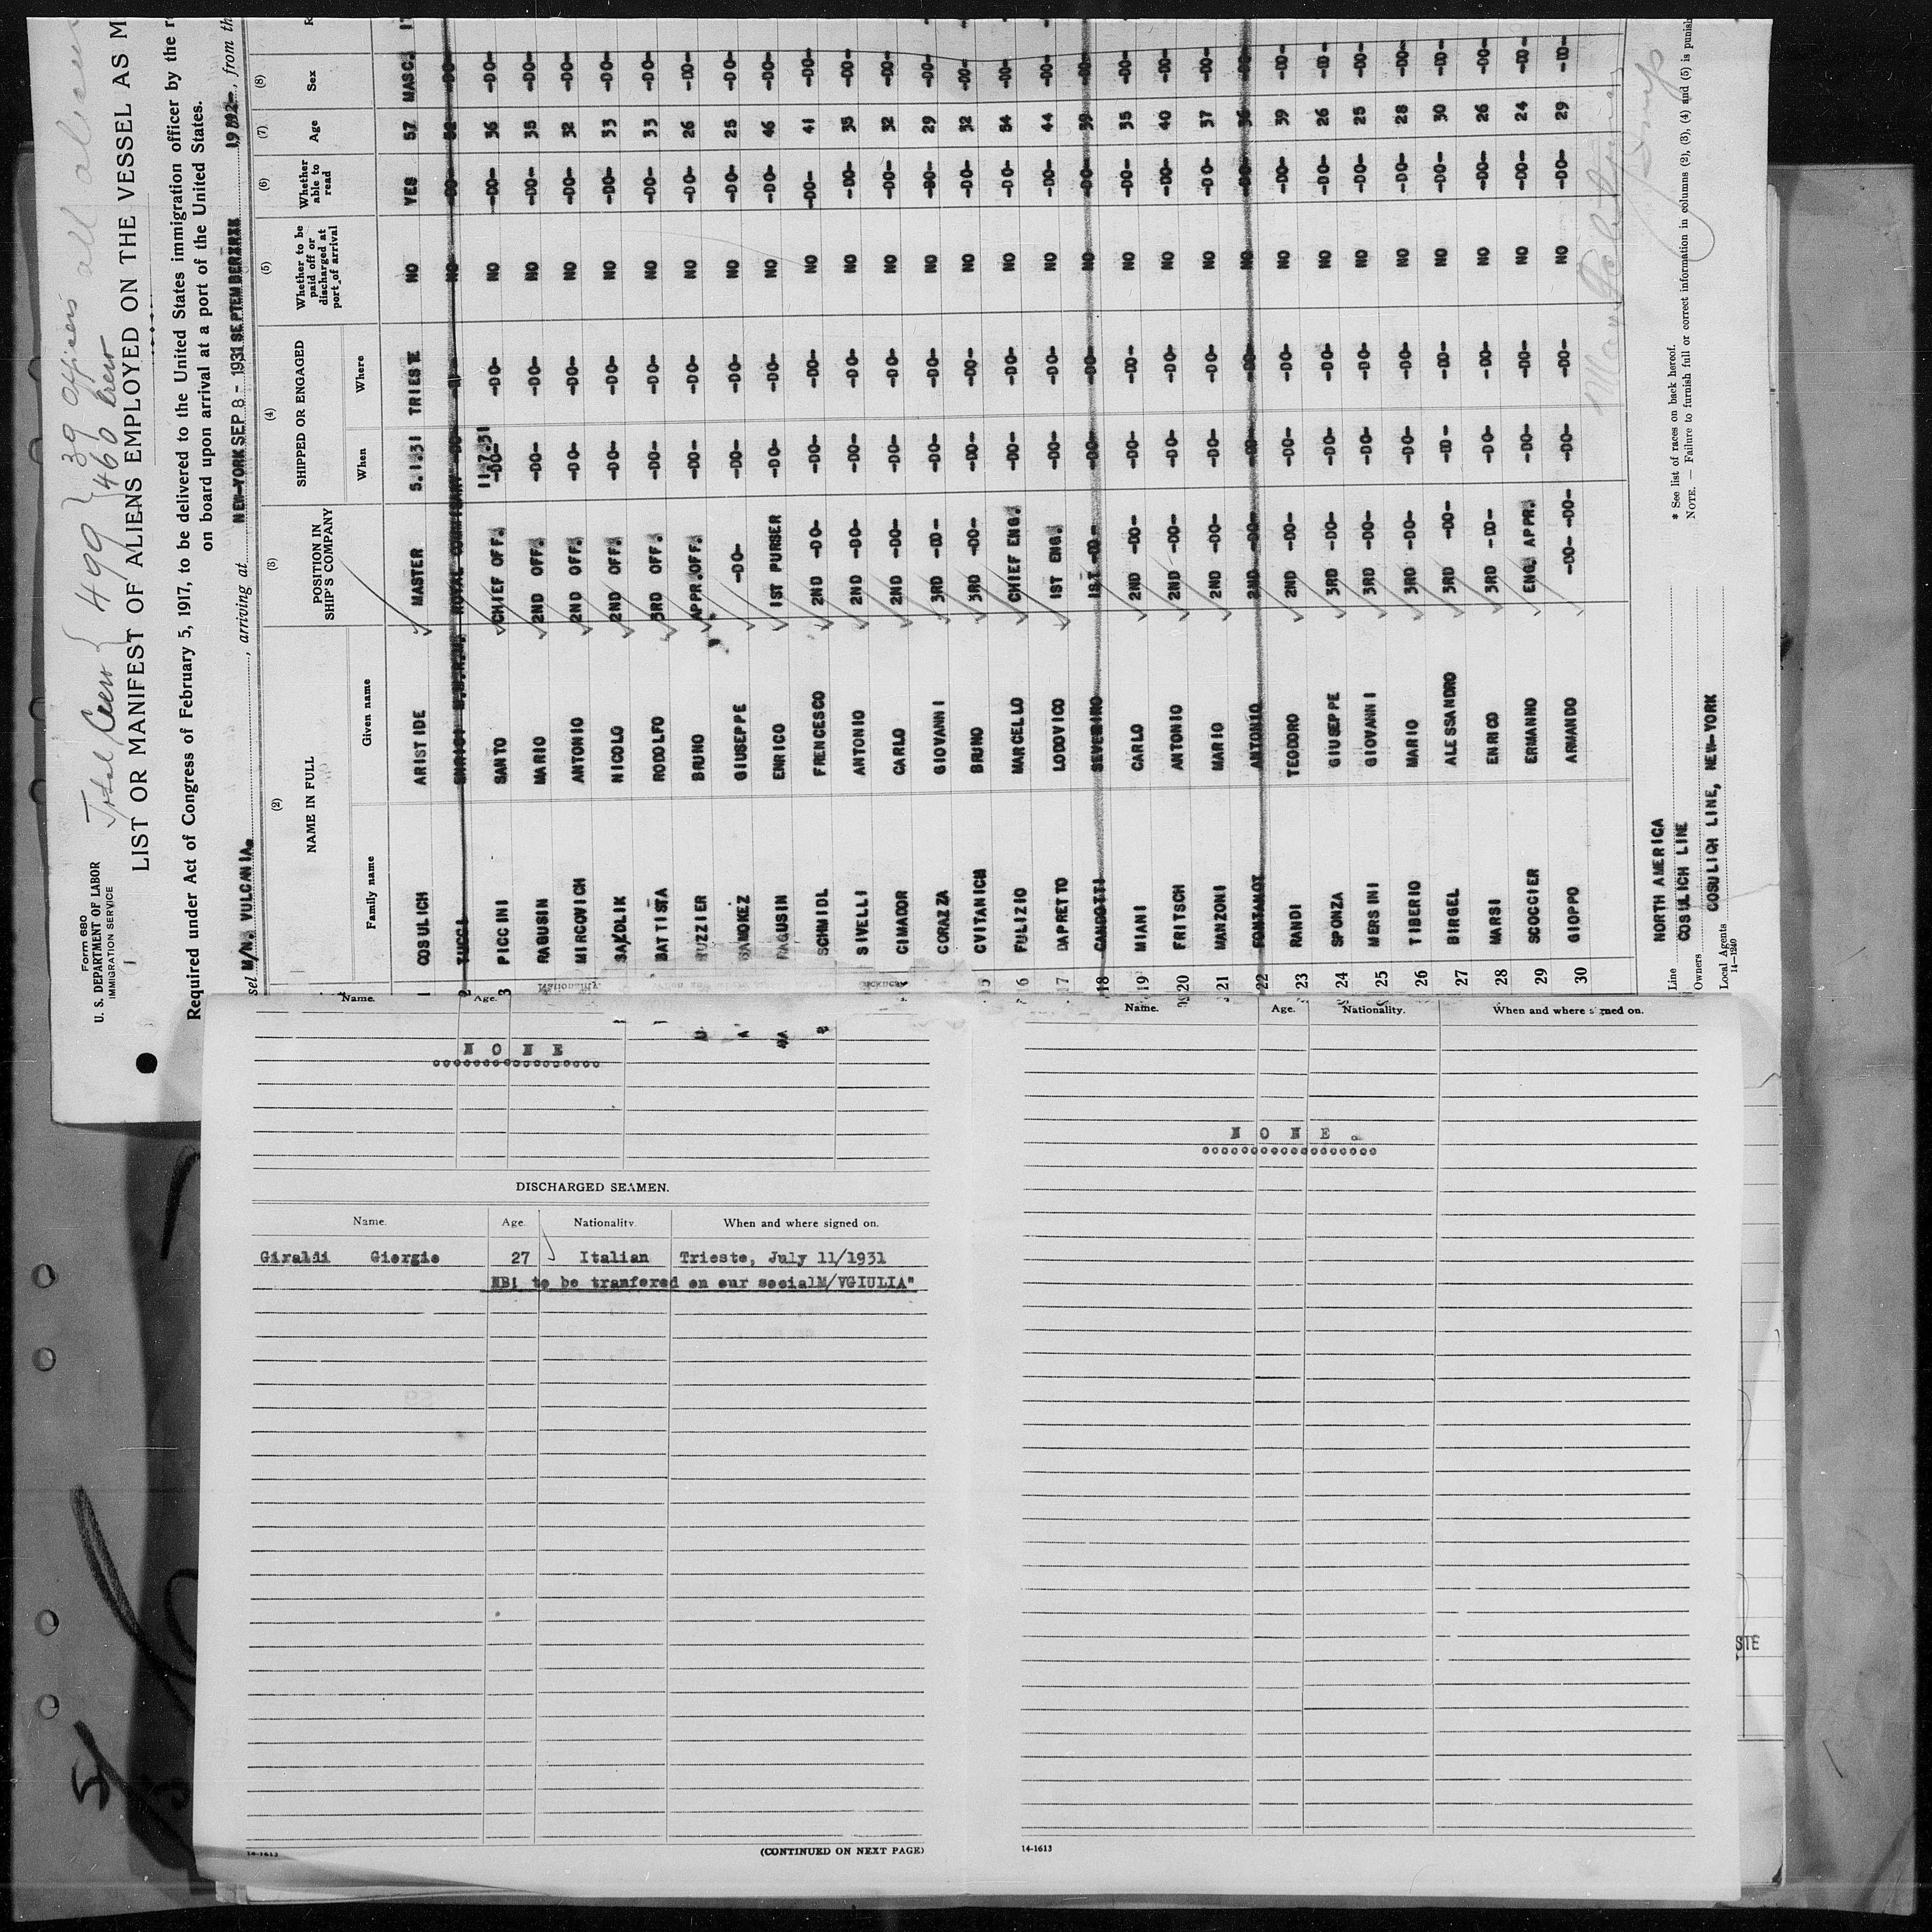 Total Crew { 499 } 39 officers all aliens
460 Crew
Form 680
U. S. DEPARTMENT OF LABOR
IMMIGRATION SERVICE
LIST OR MANIFEST OF ALIENS EMPLOYED ON THE VESSEL AS M
Required under Act of Congress of February 5, 1917, to be delivered to the United States immigration officer by the r
on board upon arrival at a port of the United States.
sel M/N. VULCANIA. , arriving at NEW-YORK SEP 8 - 1931 SEPTEMBER , from th
(2) (3) (4) (5) (6) (7) (8)
NAME IN FULL POSITION IN SHIP'S COMPANY SHIPPED OR ENGAGED Whether to be paid off or discharged at port of arrival Whether able to read Age Sex R
Family name Given name When Where
1 COSULICH ARISTIDE MASTER 5.1.31 TRIESTE NO YES 57 MASC. IT
2 TUCCI ENRICO ROYAL -DO- NO -DO- -DO-
3 PICCINI SANTO CHIEF OFF. 11.7.31 -DO- -DO- NO -DO- 36 -DO-
RAGUSIN MARIO 2ND OFF. -DO- -DO- NO -DO- 35 -DO-
MIRCOVICH ANTONIO 2ND OFF. -DO- -DO- NO -DO- 32 -DO-
NICOLO 2ND OFF. -DO- -DO- NO -DO- 33 -DO-
BATTISTA RODOLFO 3RD OFF. -DO- -DO- NO -DO- 33 -DO-
BRUNO APPR.OFF. -DO- -DO- NO -DO- 26 -DO-
GIUSEPPE -DO- -DO- -DO- NO -DO- 25 -DO-
RAGUSIN ENRICO 1ST PURSER -DO- -DO- NO -DO- 46 -DO-
SCHMIDL FRENCESCO 2ND -DO- -DO- -DO- NO -DO- 41 -DO-
SIVELLI ANTONIO 2ND -DO- -DO- -DO- NO -DO- 35 -DO-
CIMADOR CARLO 2ND -DO- -DO- -DO- NO -DO- 32 -DO-
CORAZZA GIOVANNI 3RD -DO- -DO- -DO- NO -DO- 29 -DO-
15 CVITANICH BRUNO 3RD -DO- -DO- -DO- NO -DO- 32 -DO-
16 FULIZIO MARCELLO CHIEF ENG. -DO- -DO- NO -DO- 54 -DO-
17 DAPRETTO LODOVICO 1ST ENG. -DO- -DO- NO -DO- 44 -DO-
18 CANDOTTI SEVERINO 1ST -DO- -DO- -DO- NO -DO- 39 -DO-
19 MIANI CARLO 2ND -DO- -DO- -DO- NO -DO- 35 -DO-
20 FRITSCH ANTONIO 2ND -DO- -DO- -DO- NO -DO- 40 -DO-
21 MANZONI MARIO 2ND -DO- -DO- -DO- NO -DO- 37 -DO-
22 FONTANOT ANTONIO 2ND -DO- -DO- -DO- NO -DO- 36 -DO-
23 RANDI TEODORO 2ND -DO- -DO- -DO- NO -DO- 39 -DO-
24 SPONZA GIUSEPPE 3RD -DO- -DO- -DO- NO -DO- 26 -DO-
25 MERSINI GIOVANNI 3RD -DO- -DO- -DO- NO -DO- 25 -DO-
26 TIBERIO MARIO 3RD -DO- -DO- -DO- NO -DO- 28 -DO-
27 BIRGEL ALESSANDRO 3RD -DO- -DO- -DO- NO -DO- 30 -DO-
28 MARSI ENRICO 3RD -DO- -DO- -DO- NO -DO- 26 -DO-
29 SCOCCIER ERMANNO ENG. APPR. -DO- -DO- NO -DO- 24 -DO-
30 GIOPPO ARMANDO -DO- -DO- -DO- -DO- NO -DO- 29 -DO-
Line NORTH AMERICA
Owners COSULICH LINE
Local Agents COSULICH LINE, NEW-YORK
14-1240
* See list of races on back hereof.
NOTE. — Failure to furnish full or correct information in columns (2), (3), (4) and (5) is punish
Name. Age.
N O N E
DISCHARGED SEAMEN.
Name. Age. Nationality. When and where signed on.
Giraldi Giorgio 27 Italian Trieste, July 11/1931
NB: to be tranfered on our socialM/VGIULIA"
14-1613 (CONTINUED ON NEXT PAGE)
Name. Age. Nationality. When and where signed on.
N O N E .
14-1613
STE